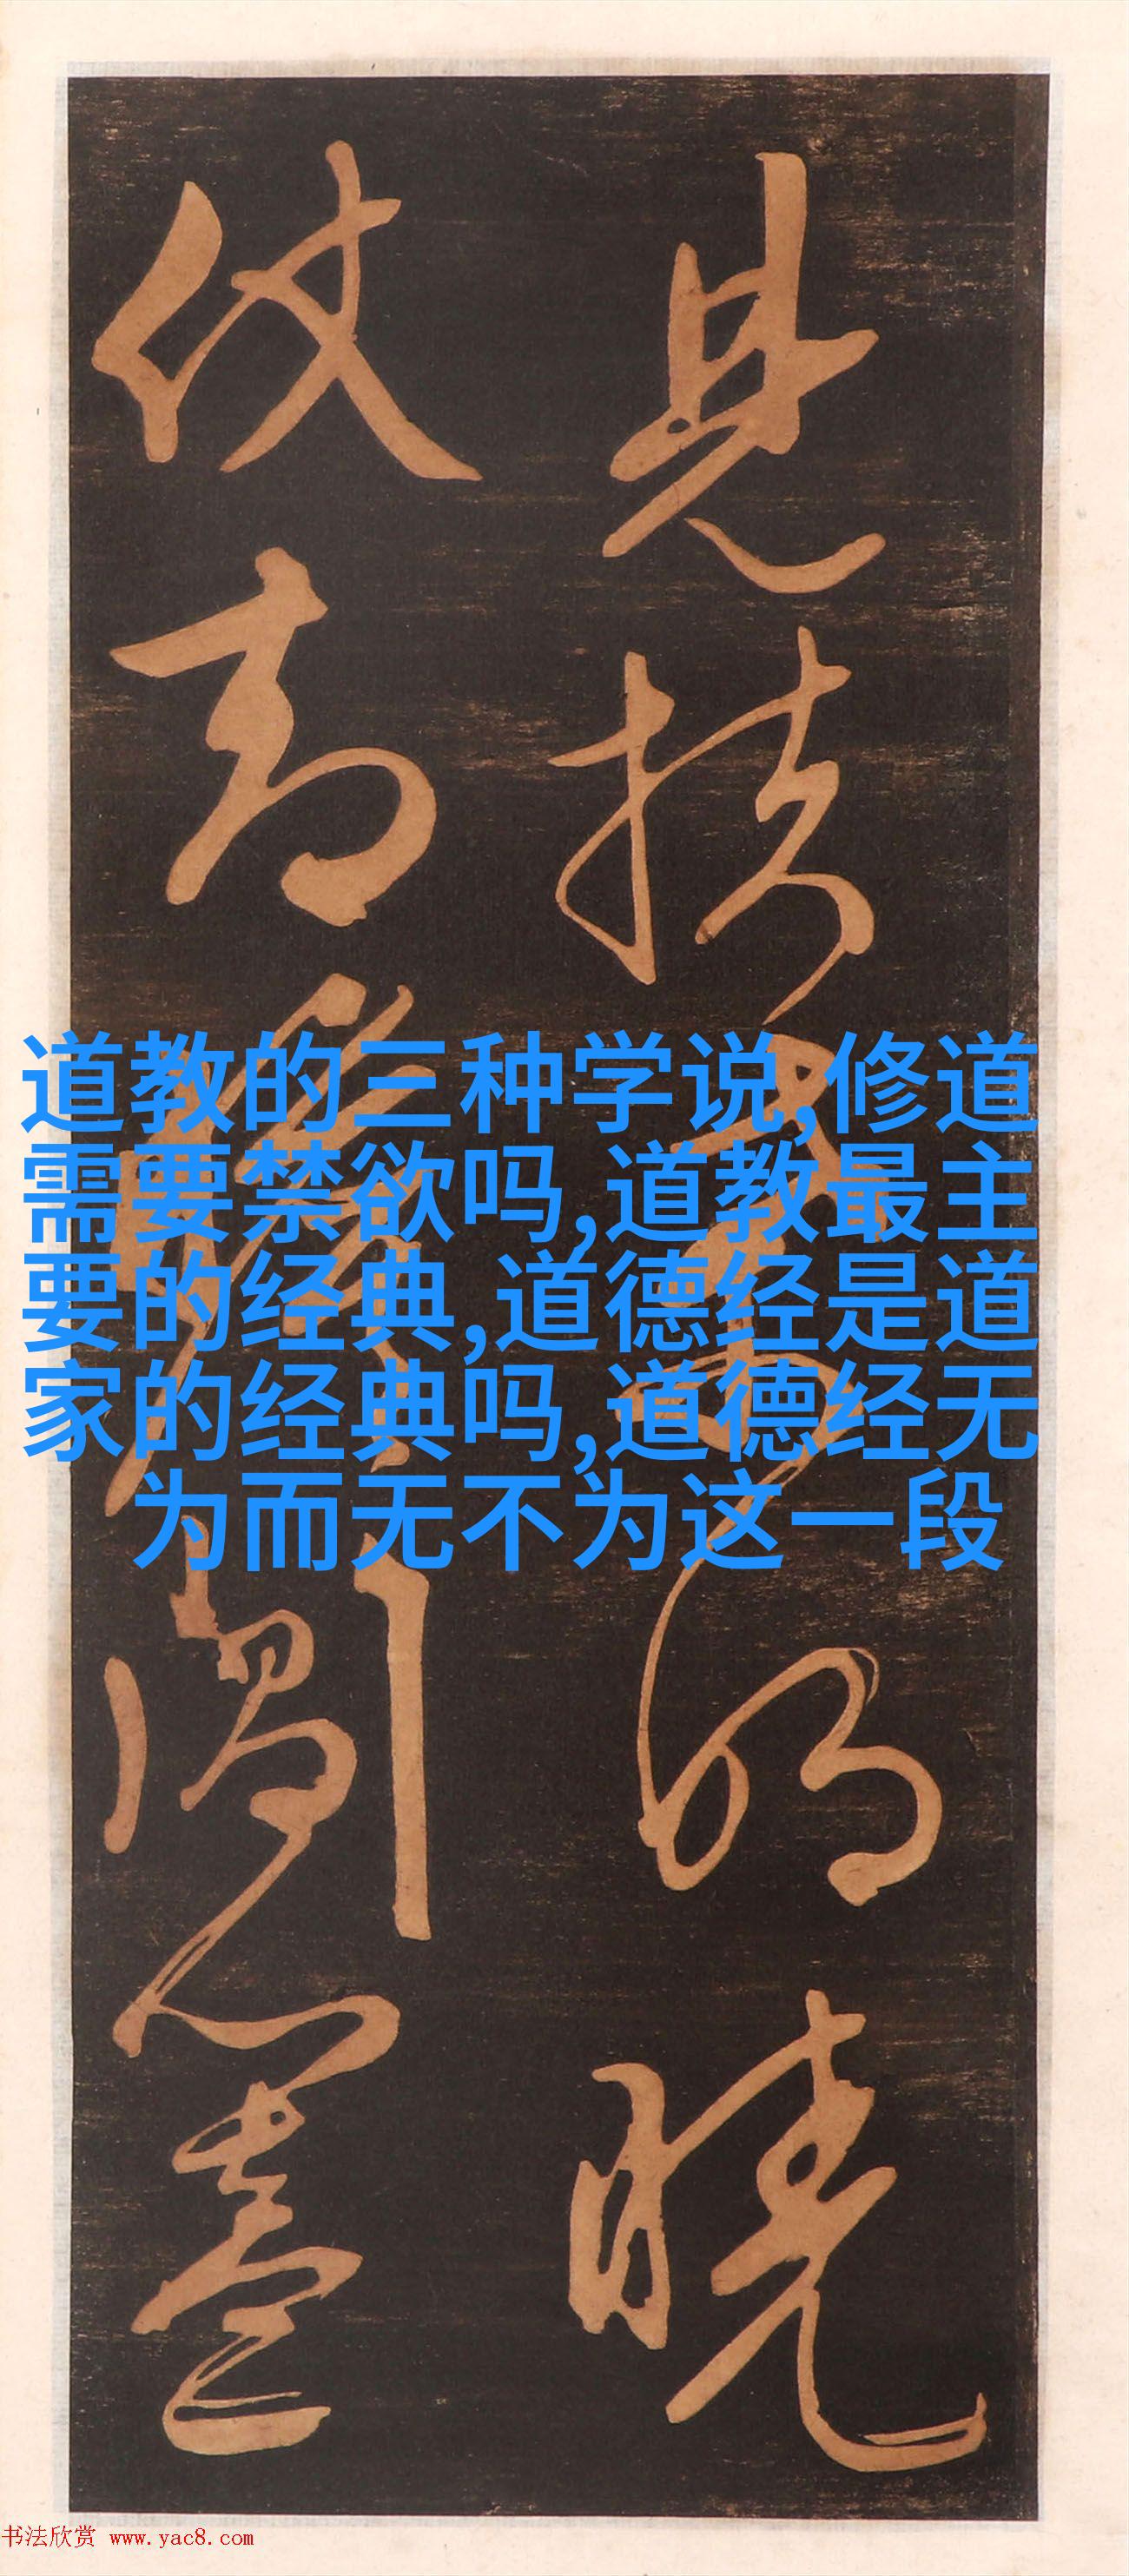 见扶桑明晓
仗高
阅尽
道教的三种学说,修道
需要禁欲吗,道教最主
要的经典,道德经是道
家的经典吗,道德经无
为而无不为这一段
书法欣赏 www.yac8.com